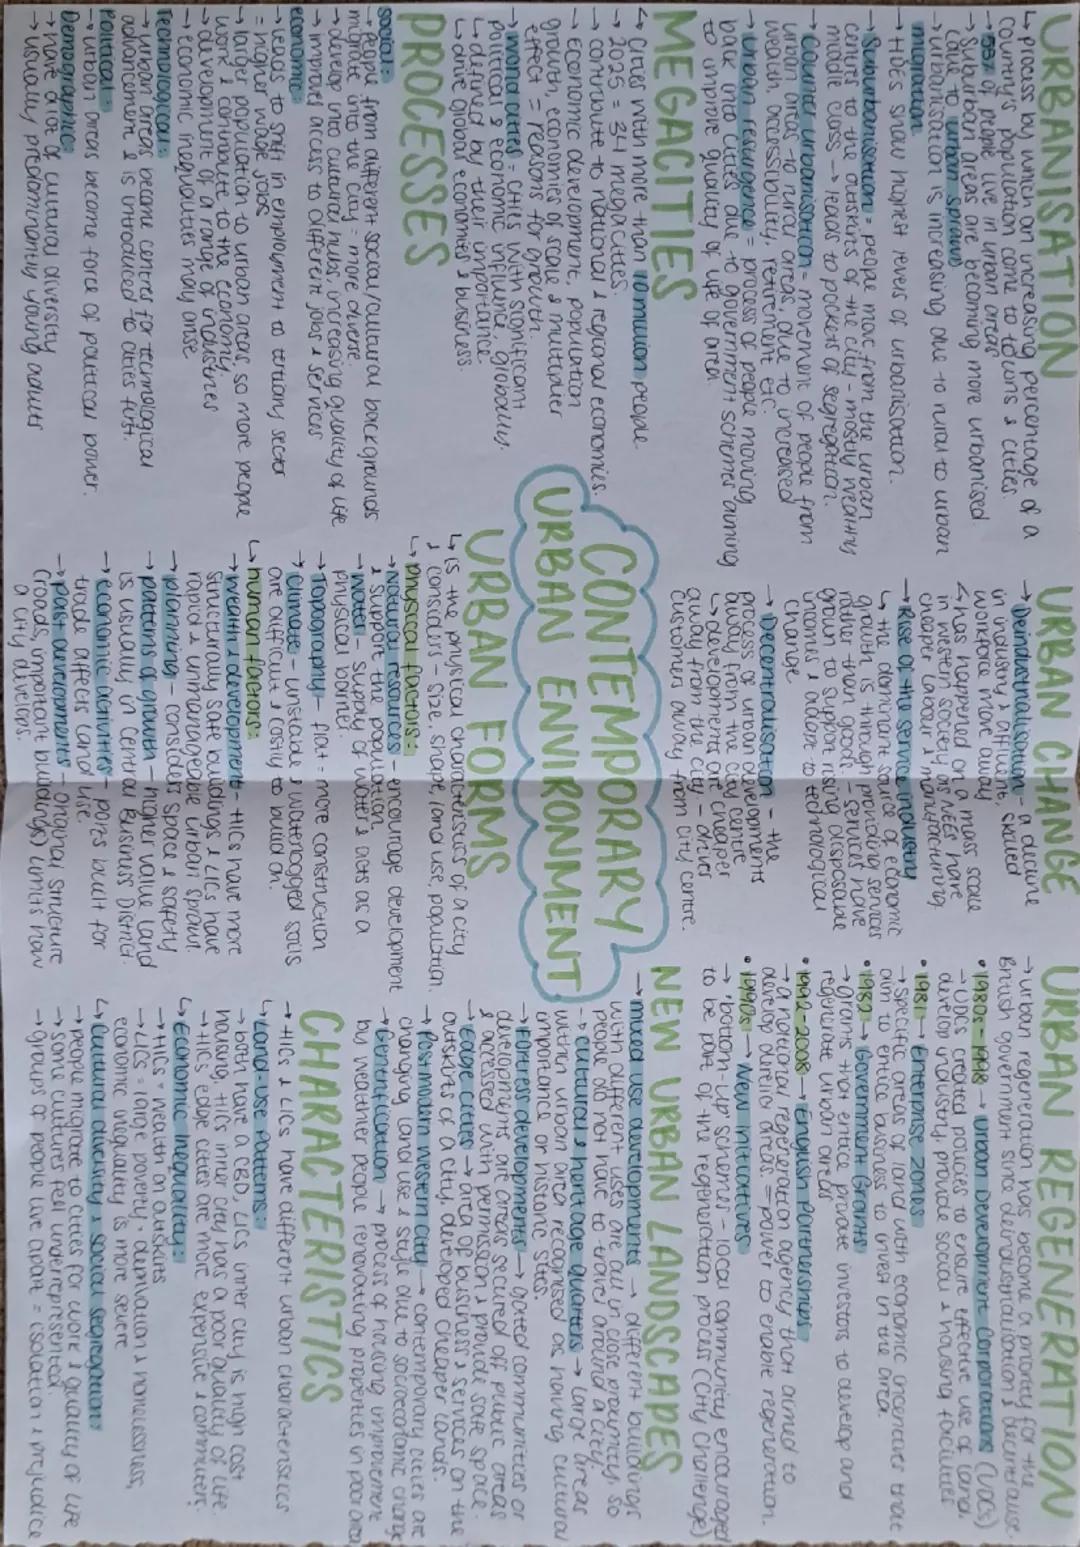 URBANISATION
↳ process by which an increasing percentage of a
country's population come to towns & cities.
→ of people live in urban areas
→ Suburban areas are becoming more urbanised
(due to urban sprawl)
→ urbanisation is increasing due to rural to urban
migration.
→ HDEs show highest levels of urbanisation.
→ Suburbanisation = people move from the urban
centre to the outskirts of the city - mostly wealthy
middle class → leads to pockets of segregation.
→ Counter urbanisation - movement of people from
urban areas to rural areas, due to increased
wealth, accessibility, retirement etc.
→ Urban resurgence = process of people moving
back into cities due to government schemes aiming
to improve quality of life of area.
MEGACITIES
↳ Cities with more than 10 million people
→ 2025 = 34 megacities.
→ contribute to national & regional economies.
→ Economic development, population
growth, economies of scale & multiplier
effect = reasons for growth.
→ World cities = cities with significant
political & economic influence, globally.
↳ defined by their importance
↳ drive global economies & business
PROCESSES
Social:
→ People from different social/cultural backgrounds
migrate into the city = more diverse
→ develop into cultural hubs, increasing quality of life
→ improves access to different jobs & services
economic:
→ leads to shift in employment to tertiary sector
= higher wage jobs
→ larger population to urban areas so more people
work & contribute to the economy
→ development of a range of industries
→ economic inequalities may arise
Technological:
→ urban areas become centres for technological
advancement & is introduced to cities first.
Political:
→ urban areas become force of political power.
Demographic:
→ Have a lot of cultural diversity
→ usually predominantly young adults
CONTEMPORARY
URBAN ENVIRONMENT
URBAN CHANGE
→ Deindustrialisation - a decline
in industry & affluent, skilled
workforce move away
↳ has happened on a mass scale
in western society as NEEs have
cheaper labour & manufacturing.
→ Rise of the service industry
↳ the dominant source of economic
growth is through providing services
rather than goods - services have
grown to support rising disposable
incomes & adapt to technological
change.
→ Decentralisation - the
process of urban developments
away from the city centre
↳ developments are cheaper
away from the city - drives
customers away from city centre.
URBAN FORMS
↳ is the physical characteristics of a city
& considers - size, shape, land use, population
↳ physical factors:
→ Natural resources - encourage development
& support the population.
→ Water - supply of water & acts as a
physical barrier.
→ Topography - flat = more construction
→ Climate - unstable & waterlogged soils
are difficult & costly to build on.
↳ human factors:
→ wealth & development - HICs have more
structurally safe buildings & LICs have
rapid & unmanageable urban sprawl.
→ planning - considers space & safety
→ patterns of growth - higher value land
is usually in Central Business District
→ economic activities - ports built for
trade affects land use.
→ past developments - original structure
(roads, important buildings) limits how
a city develops.
URBAN REGENERATION
→ urban regeneration has become a priority for the
British government since deindustrialisation & decentralise.
• 1980s-1998 → Urban Development Corporations (UDCs)
→ UDCs created policies to ensure effective use of land,
develop industry, provide social & housing facilities
• 1981 → Enterprise Zones
→ Specific areas of land with economic incentives that
aim to entice business to invest in the area.
• 1982 → Government Grants
→ grants that entice private investors to develop and
regenerate urban areas
• 1992-2008 → English Partnerships
→ a national regeneration agency that aimed to
develop derelict areas = power to enable regeneration.
• 1990s → New Initiatives
→ bottom-up schemes - local community encouraged
to be part of the regeneration process (City Challenge)
NEW URBAN LANDSCAPES
→ mixed use developments → different buildings
with different uses are all in close proximity, so
people do not have to travel around a city.
→ cultural & heritage quarters → large areas
within urban area recognised as having cultural
importance or historic sites.
→ Fortress developments → gated communities or
developments are areas secured off public areas
& accessed with permission & provide safe space.
→ Edge cities → area of business & services on the
outskirts of a city, developed cheaper lands.
→ Postmodern western city → contemporary cities are
changing land use & style due to socioeconomic change
→ Gentrification → process of housing improvement
by wealthier people renovating properties in poor area
CHARACTERISTICS
→ HICs & LICs have different urban characteristics
↳ Land-use Patterns:
→ both have a CBD, LICs inner city is high cost
housing, HICs inner city has a poor quality of life
→ HICs edge cities are more expensive & commuters.
↳ Economic Inequality:
→ HICs = wealth on outskirts
→ LICs = large poverty, deprivation & homelessness,
economic inequality is more severe
↳ Cultural diversity & social segregation:
→ people migrate to cities for work & quality of life
→ some cultures feel underrepresented.
→ groups of people live apart = isolation & prejudice